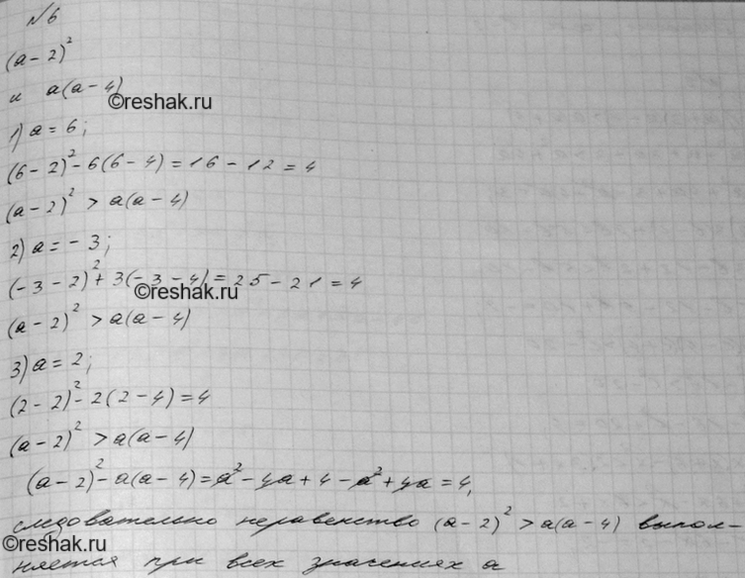 №6
(a-2)²
и a(a-4)
©reshak.ru
1) a=6;
(6-2)²-6(6-4)=16-12=4
(a-2)²>a(a-4)
2) a=-3;
(-3-2)²+3(-3-4)=25-21=4
©reshak.ru
(a-2)²>a(a-4)
3) a=2;
(2-2)²-2(2-4)=4
(a-2)²>a(a-4)
(a-2)²-a(a-4)=a²-4a+4-a²+4a=4,
следовательно неравенство (a-2)²>a(a-4) выпол-
©reshak.ru
няется при всех значениях a